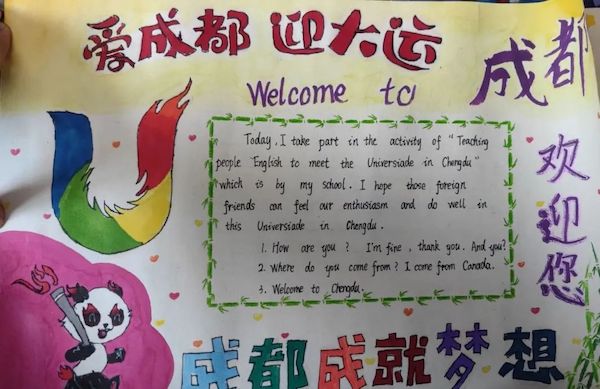 爱成都 迎大运
Welcome to 成都
欢迎您
Today, I take part in the activity of "Teaching
people English to meet the Universiade in Chengdu"
which is by my school. I hope those foreign
friends can feel our enthusiasm and do well in
this Universiade in Chengdu.
1. How are you? I'm fine, thank you. And you?
2. Where do you come from? I come from Canada.
3. Welcome to Chengdu.
成都成就梦想